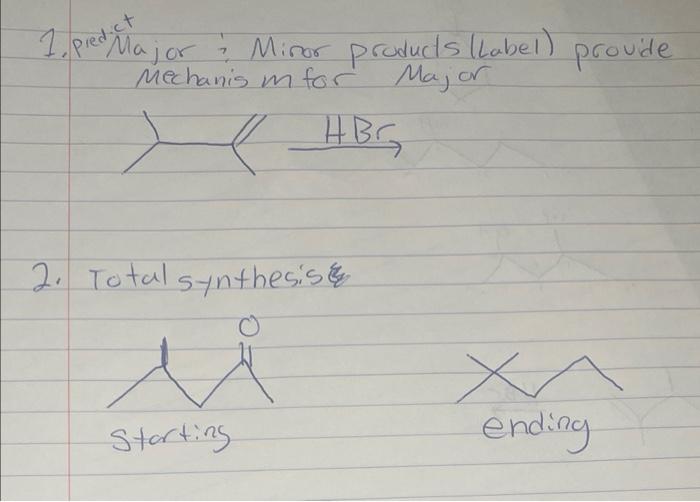 1. predict Major & Minor products (Label) provide
Mechanism for Major
HBr
2. Total synthesis
O
starting
ending